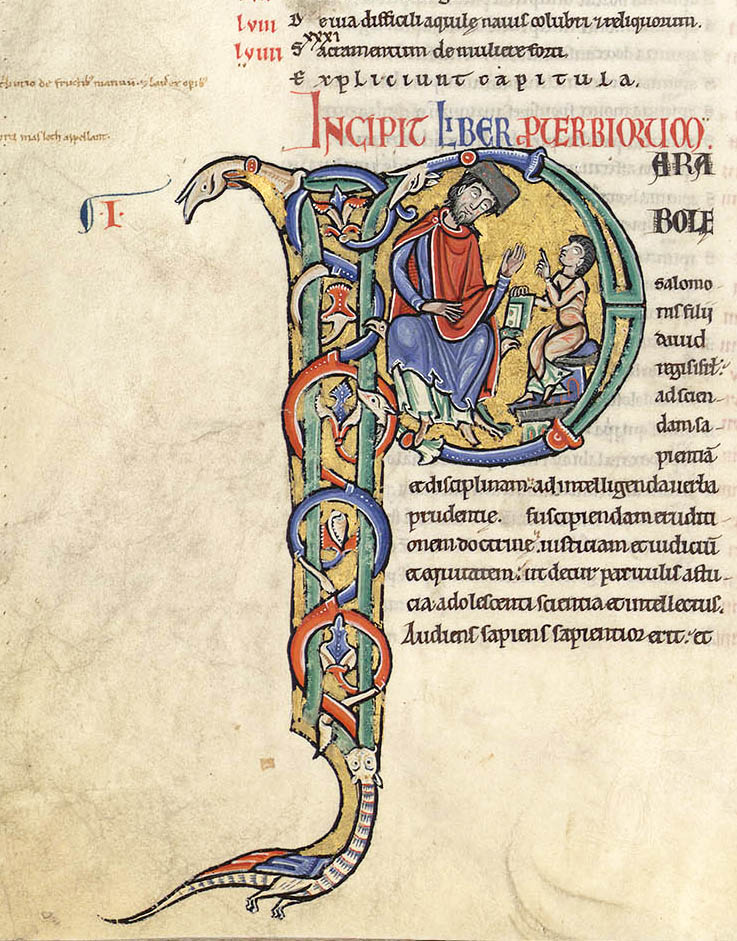 lviii D e uia difficili aquile nauis colubri & reliquorum.
xxxi
lviiii S acramentum de muliere forti.
E xpliciunt capitula.
INCIPIT LIBER PUERBIORUM.
.I.
PARA
BOLE
salomo
nis filii
dauid
regis isrl:
ad scien
dam sa
pientiā
et disciplinam. ad intelligenda uerba
prudentie. suscipiendam eruditi
onem doctrine. iusticiam et iudiciū
et equitatem: ut detur paruulis astu
cia. adolescenti scientia et intellectus.
Audiens sapiens sapientior erit: et